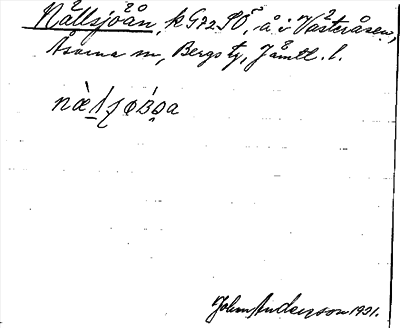 Nällsjöån, k G72 SÖ, å i Västeråsen,
Åsarna sn, Bergs tg, Jämtl. l.
John Anderson 1931.